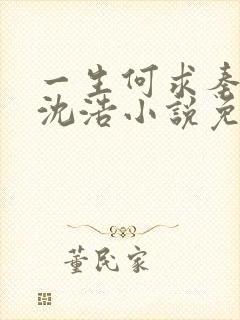 一生何求秦
沈浩小说免
董民家